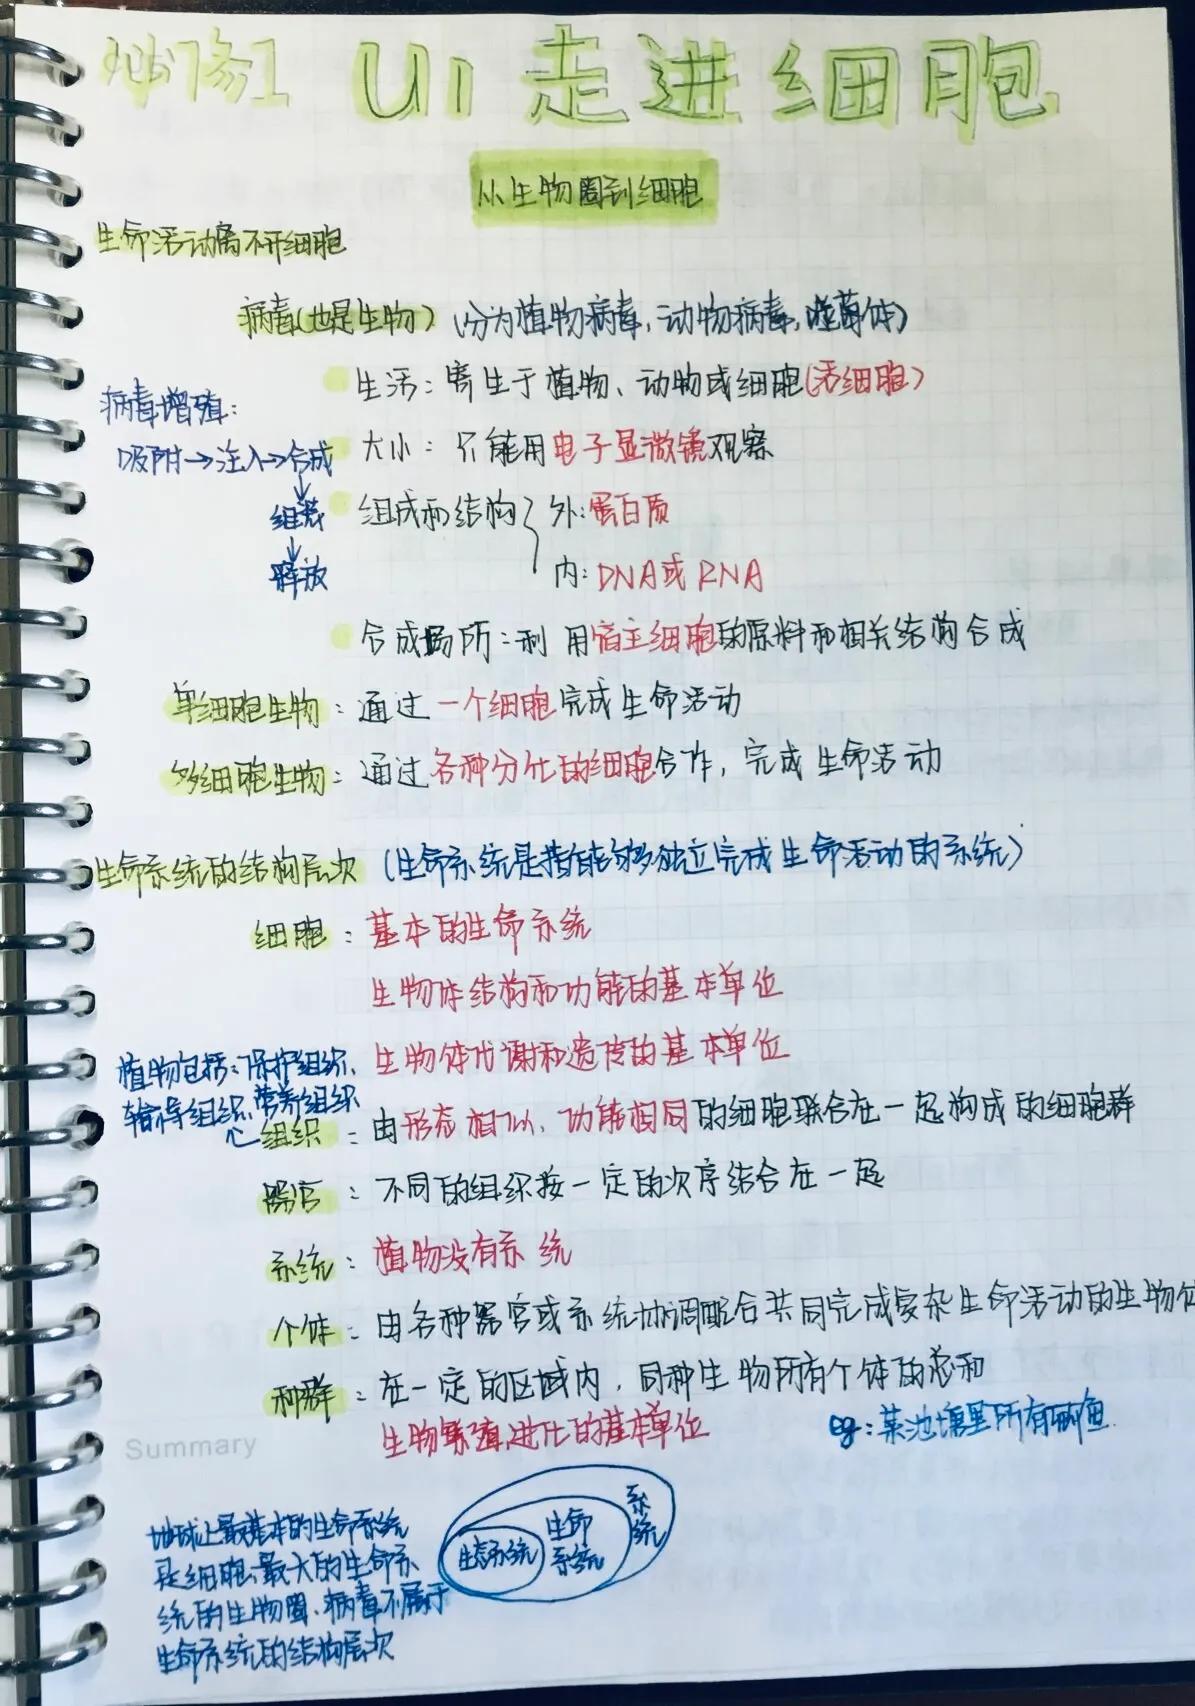 必修1 U1 走进细胞
从生物圈到细胞
生命活动离不开细胞
病毒(也是生物) (分为植物病毒,动物病毒,噬菌体)
生活:寄生于植物、动物或细胞(活细胞)
病毒增殖:
大小:只能用电子显微镜观察
吸附→注入→合成
↓
组装
组成和结构{外:蛋白质
↓
释放
内:DNA或RNA
合成场所:利用宿主细胞的原料和相关结构合成
单细胞生物:通过一个细胞完成生命活动
多细胞生物:通过各种分化的细胞合作,完成生命活动
生命系统的结构层次 (生命系统是指能够独立完成生命活动的系统)
细胞:基本的生命系统
生物体结构和功能的基本单位
生物体代谢和遗传的基本单位
植物包括:保护组织、
输导组织、营养组织
组织:由形态相似、功能相同的细胞联合在一起构成的细胞群
器官:不同的组织按一定的次序结合在一起
系统:植物没有系统
个体:由各种器官或系统协调配合共同完成复杂生命活动的生物体
种群:在一定的区域内,同种生物所有个体的总和
生物繁殖,进化的基本单位
eg:某池塘里所有
Summary
地球上最基本的生命系统
是细胞,最大的生命系
统的生物圈、病毒不属于
生命系统的结构层次
生态系统
生命
系统
系统